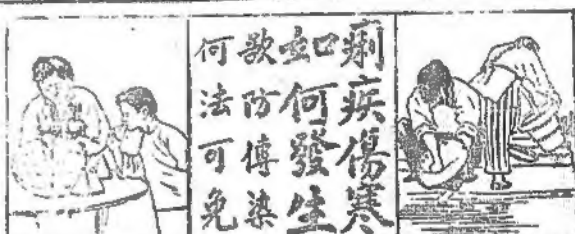 痢疾傷寒
如何發生
欲防傳染
何法可免